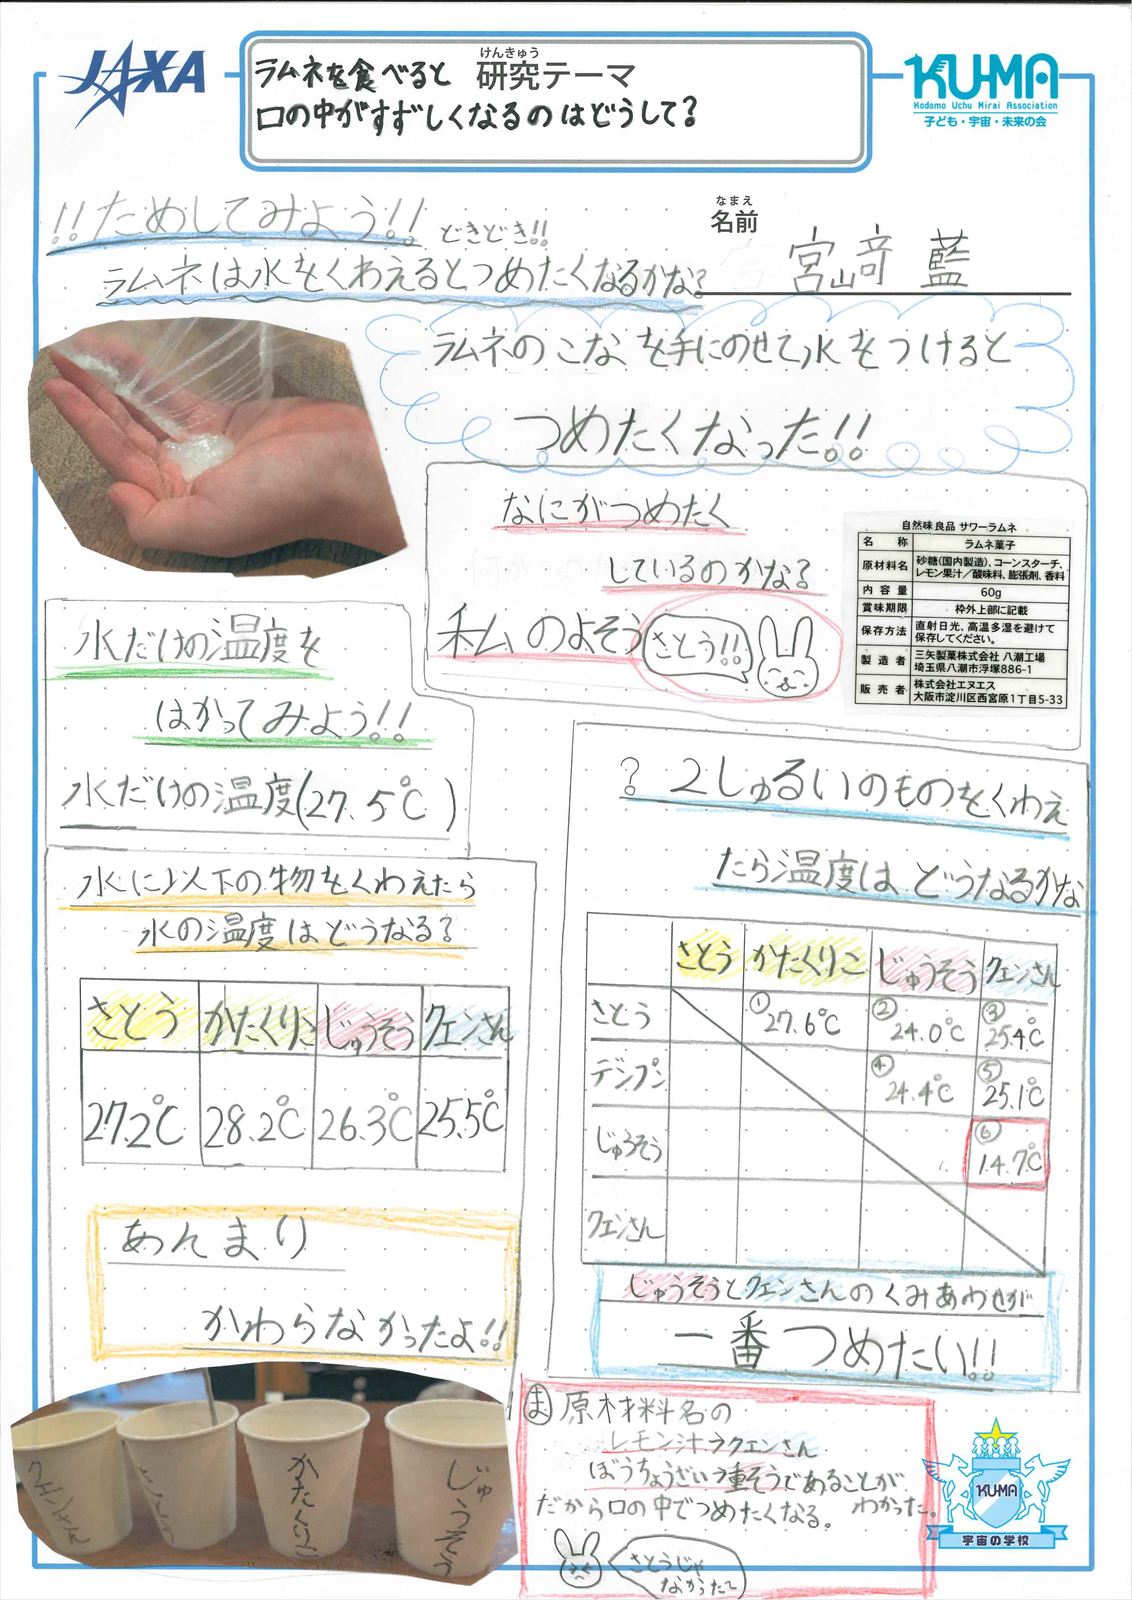 JAXA
けんきゅう
研究テーマ
ラムネを食べると
口の中がすずしくなるのはどうして?
KU-MA
Kodomo Uchu Mirai Association
子ども・宇宙・未来の会
!!ためしてみよう!! どきどき!!
なまえ
名前
宮﨑 藍
ラムネは水をくわえるとつめたくなるかな?
ラムネのこなを手にのせて水をつけると
つめたくなった!!
なにがつめたく
しているのかな?
私のよそう さとう!!
自然味良品 サワーラムネ
名 称 ラムネ菓子
原材料名 砂糖(国内製造)、コーンスターチ、
レモン果汁/酸味料、膨張剤、香料
内 容 量 60g
賞味期限 枠外上部に記載
保存方法 直射日光、高温多湿を避けて
保存してください。
製 造 者 三矢製菓株式会社 八潮工場
埼玉県八潮市浮塚886-1
販 売 者 株式会社エヌエス
大阪市淀川区西宮原1丁目5-33
水だけの温度を
はかってみよう!!
水だけの温度(27.5℃)
水に以下の物をくわえたら
水の温度はどうなる?
さとう かたくりこ じゅうそう クエンさん
27.2℃ 28.2℃ 26.3℃ 25.5℃
あんまり
かわらなかったよ!!
? 2しゅるいのものをくわえ
たら温度はどうなるかな
さとう かたくりこ じゅうそう クエンさん
さとう ①27.6℃ ②24.0℃ ③25.4℃
デンプン ④24.4℃ ⑤25.1℃
じゅうそう ⑥14.7℃
クエンさん
じゅうそうとクエンさんのくみあわせが
一番つめたい!!
クエンさん
かたくりこ
じゅうそう
ま 原材料名の
レモン汁→クエンさん
ぼうちょうざい→重そうであることが
わかった。
だから口の中でつめたくなる。
さとうじゃ
なかったて
KUMA
宇宙の学校